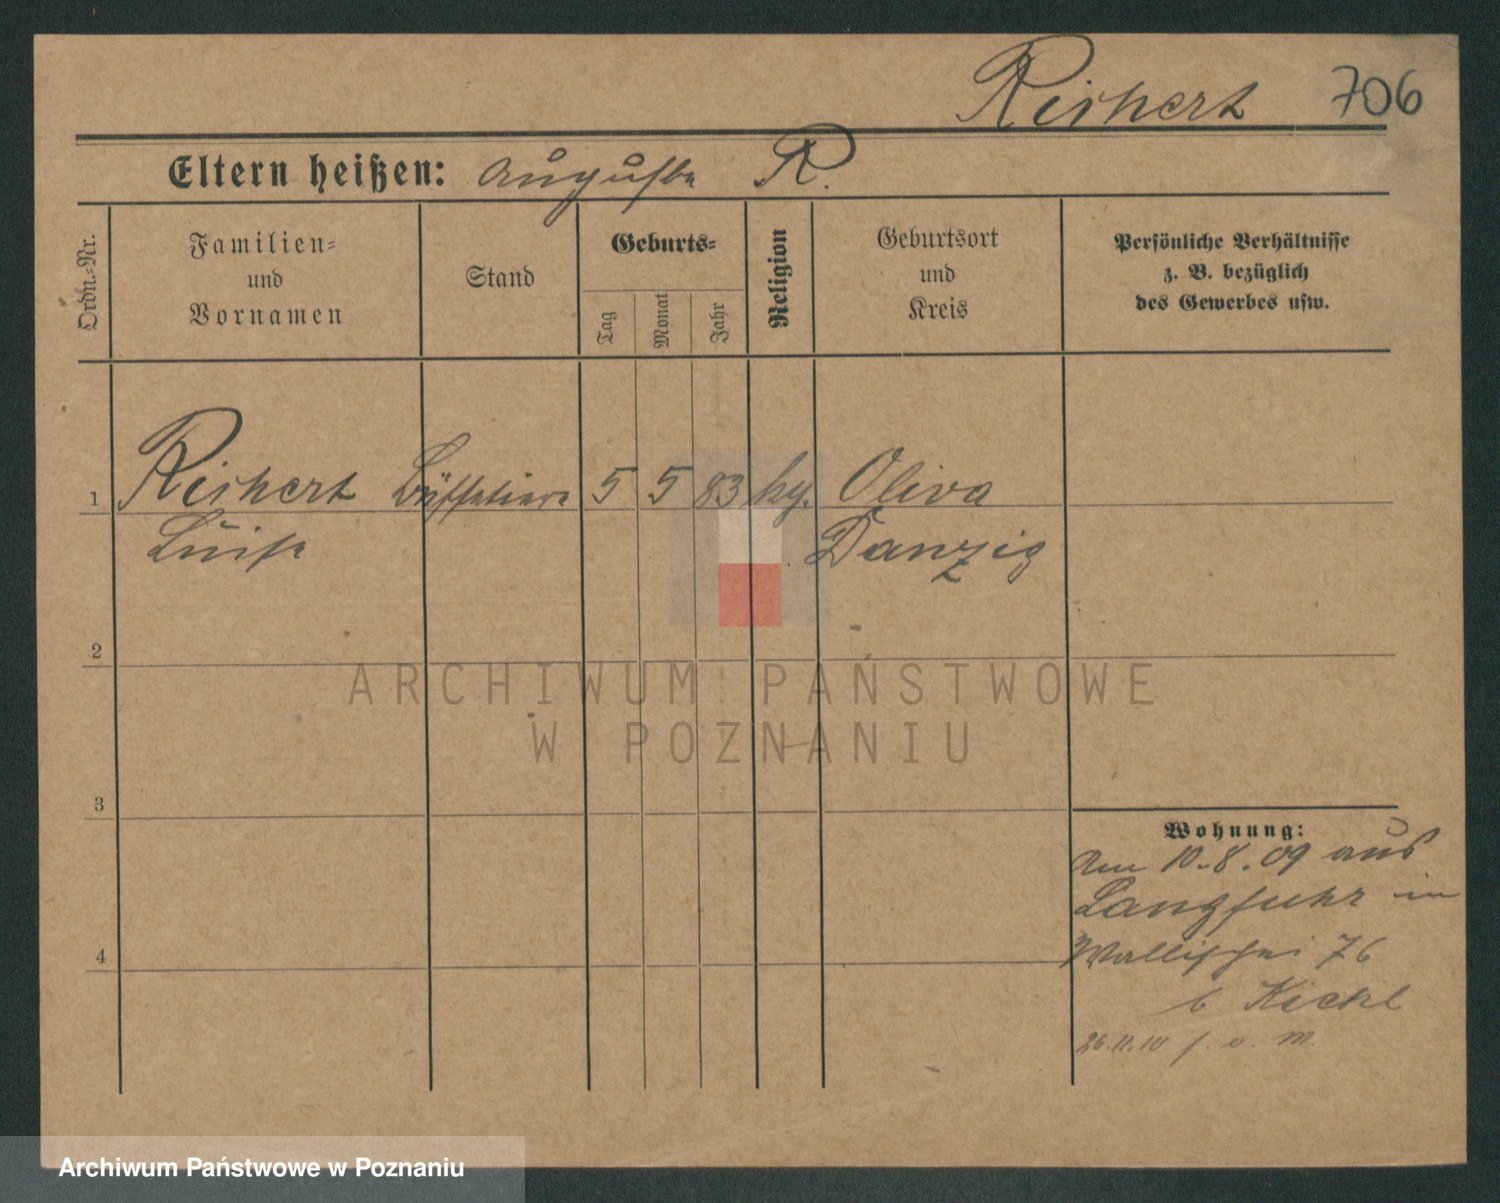 Reichert 706
Eltern heißen: Auguste R.
Ordn.=Nr.
Familien=
und
Vornamen
Stand
Geburts=
Tag
Monat
Jahr
Religion
Geburtsort
und
Kreis
Persönliche Verhältnisse
z. B. bezüglich
des Gewerbes usw.
1 Reichert Büffetiere 5 5 83 Oliva
Luise Danzig
2
3
4
Wohnung:
Am 10.8.09 aus
Langfuhr in
Wallischei 76
b
26.11.10
ARCHIWUM PAŃSTWOWE
W POZNANIU
Archiwum Państwowe w Poznaniu